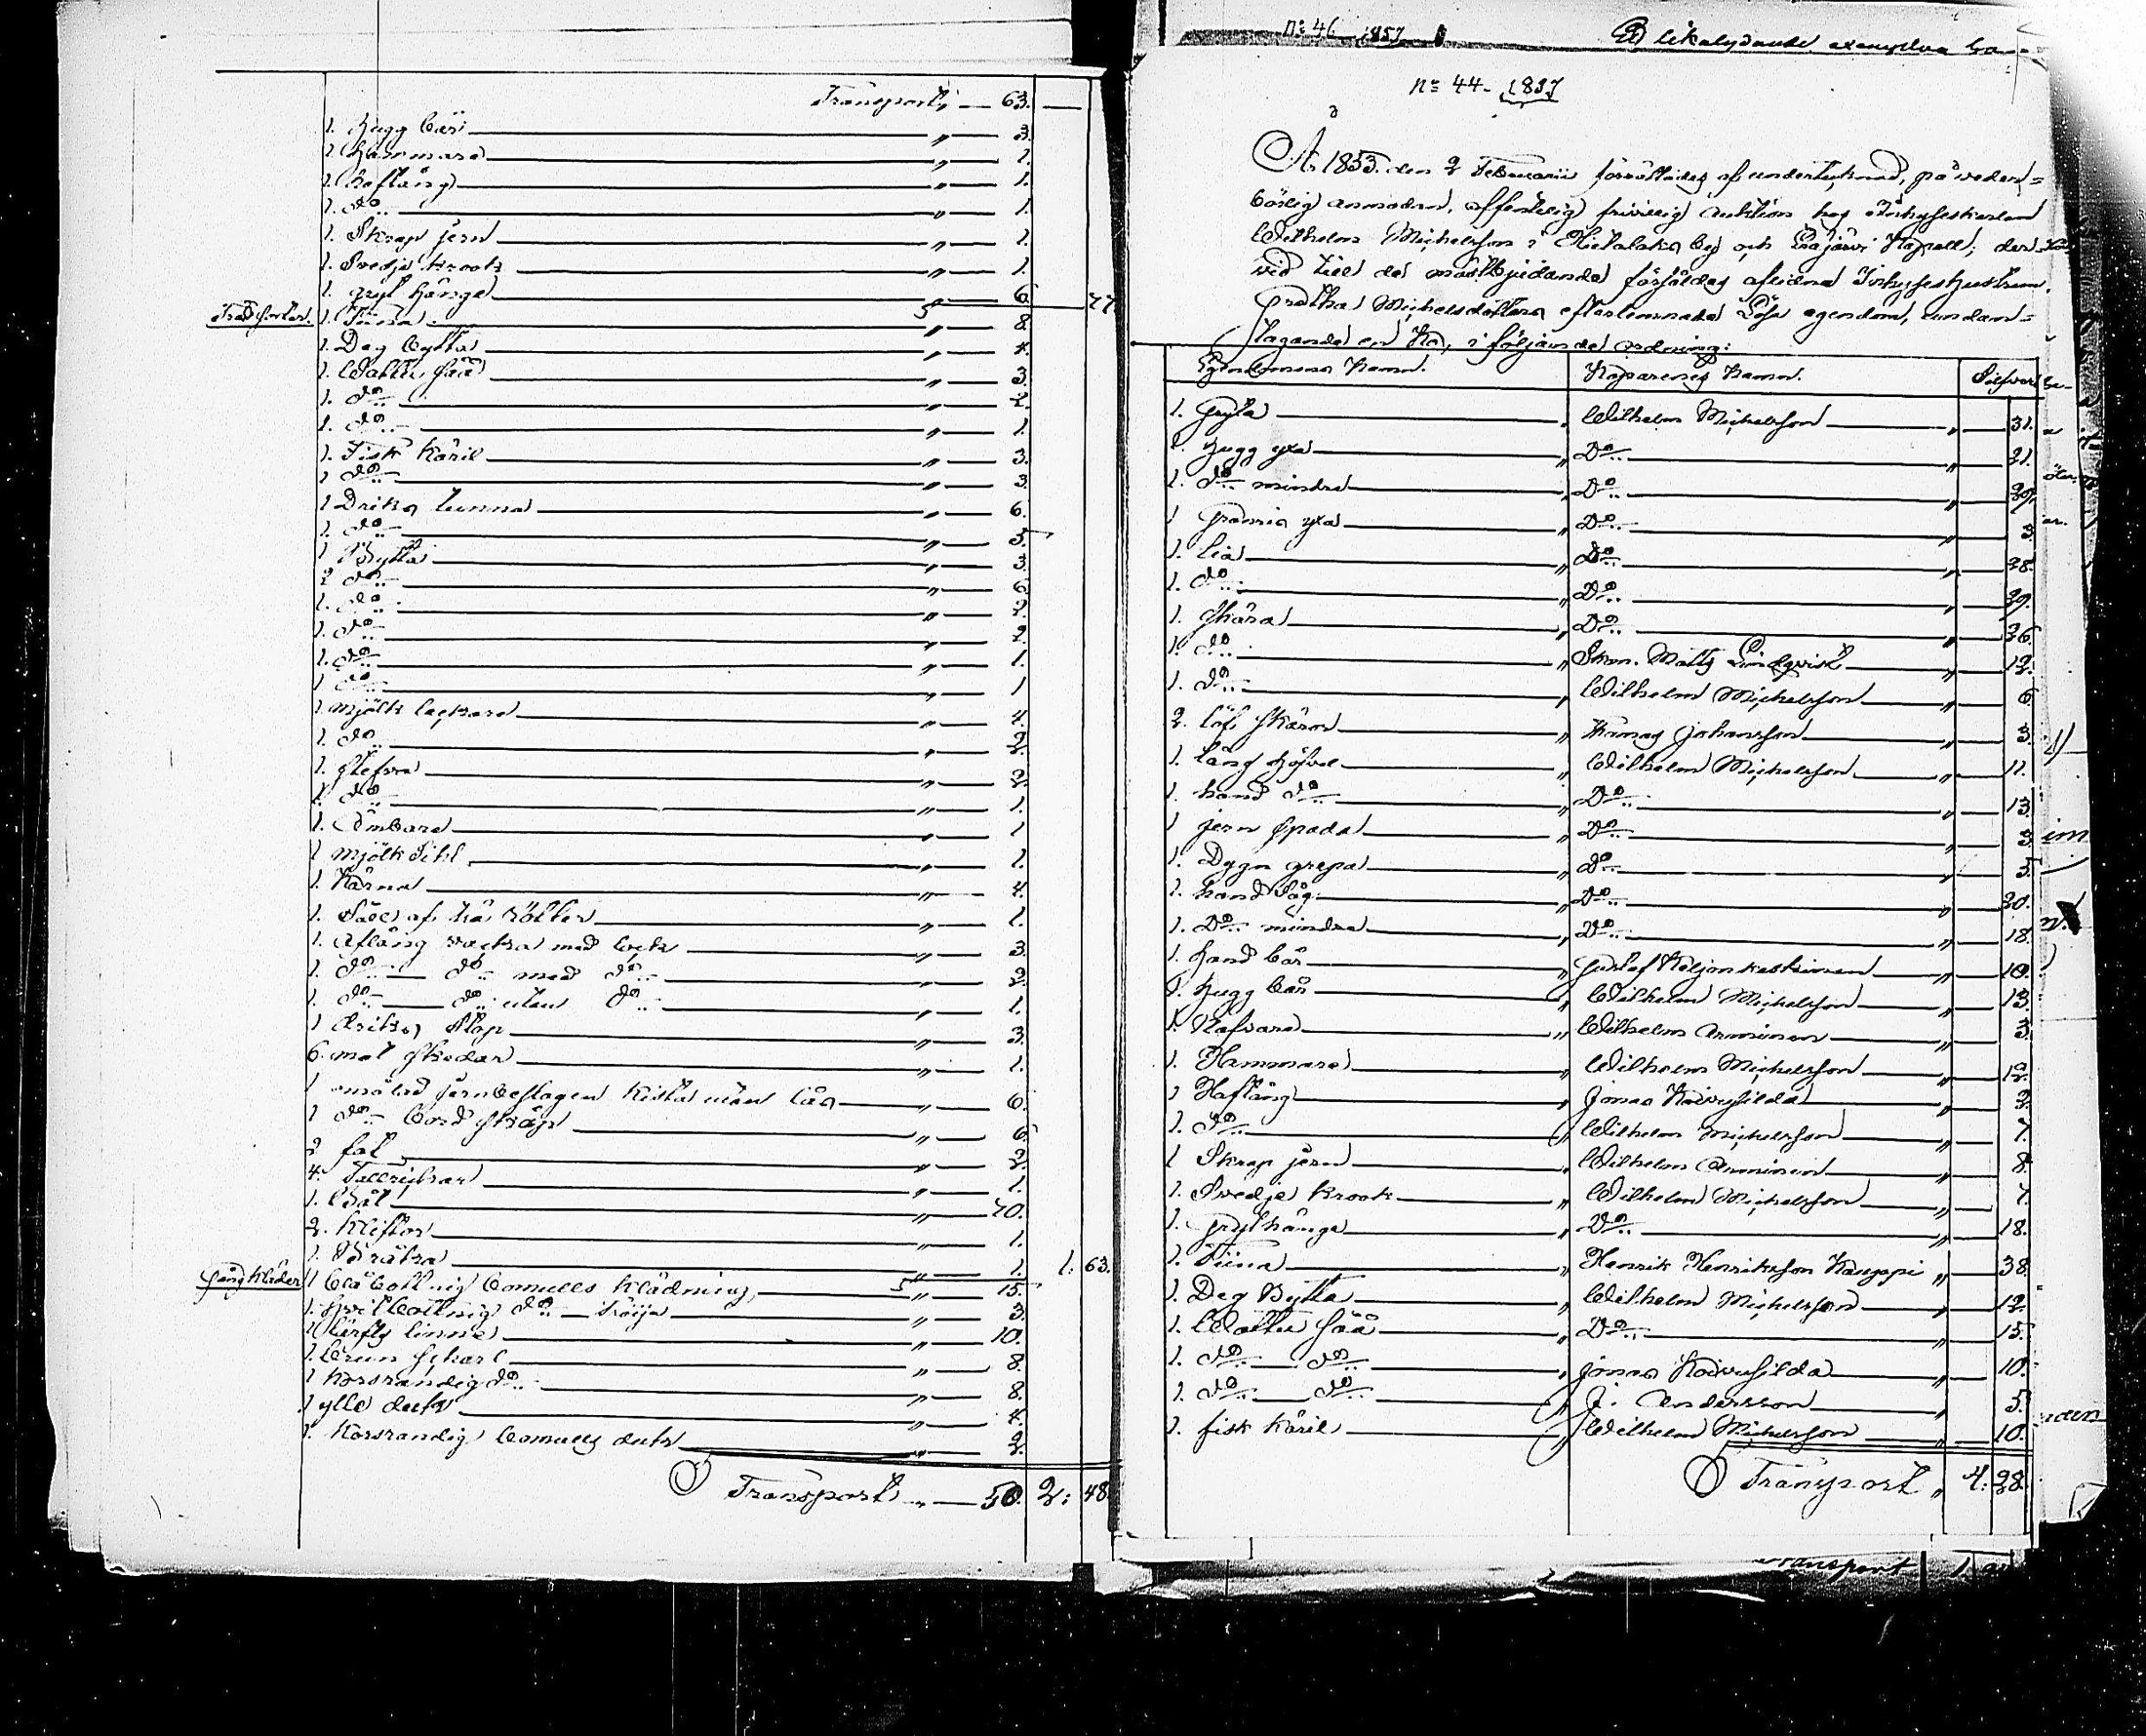 Transport, 63.
1. hugg bår " 3.
1. hammare " 1.
1. hoftång " 1.
1. do " 1.
1. Skrap jern " 1.
1. Svedje krook " 1.
1. gryt hänge " 6. 77.
Trädsorter. 1. Tiina 5 " 8.
1. Deg bytta " 4.
1. Wattu såå " 3.
1. do " 2.
1. do " 1.
1. Fisk käril " 3.
1 do " 3.
1 Driks tunna " 6.
1. do " 5.
1 Bytta " 3.
2 do " 6.
1. do " 2.
1. do " 2.
1. do " 1.
1 do " 1
1 mjölk lackare " 4.
1. do " 2.
1. stefva " 2.
1. do " 1.
1. Ämbare " 1
1 mjölk Sihl " 1.
1. Kärna " 4.
1. Såll af trä rötter " 1.
1. aflång vacka med lock " 3.
1. do do med do " 2.
1. do do utan do " 1.
1 driks Stop " 3.
6. mat skedar " 1.
1 målad jernbeslagen kista utan lås " 6.
1 do bord skåp " 6.
2 fat " 2.
4. Tallrikar " 1.
1. Båt " 70.
2. Klistor " 1.
1. " 1. 1: 63.
Gångkläder 1 blå bottnig bomulls klädning, 5 " 15.
1. hvit bottnig do tröija " 3.
1 lärfts linne " 10.
1. brun scharl " 8.
1 korsrandig do " 8.
1 ylle duk " 4.
1. Korsrandig bomulls duk " 2.
Transport " 50. 2: 48.
No 46 1857
likalydande exemplar
No 44 - 1857
År 1853. den 2 Februarii förrättades af undertecknad, på veder=
börlig anmodan, offentelig frivillig auktion hos Inhyseskarlen
Wilhelm Michelsson i Hietalaks by och Kapell; der
vid till de mästbjudande försåldes aflidna Inhyseshustrun
Gretha Michelsdotters efterlemnade Lösa egendom, undan=
tagande en Ko, i följande ordning:
Egendomens Namn. Köparenes Namn. Silfver
1. Gryta " Wilhelm Michelsson " 31.
1. hugg yxa " Do " 21.
1. do mindre " Do " 29.
1 yxa " Do " 3.
1. lia " Do " 28.
1. do " Do " 29.
1. skära " Do " 26.
1. do " Skon. Matts Lindqvist " 12.
1. do " Wilhelm Michelsson " 6
2. löf skäror " Thomas Johansson " 3.
1. lång höfvel " Wilhelm Michelsson " 11.
1. hand do " Do " 13.
1 jern spada " Do " 3.
1. Dygn grepa " do " 5
1. hand såg " Do " 20.
1. Do mindre " Do " 18.
1. hand bår " Gustaf Koljonkoskinen " 10.
1. hugg bår " Wilhelm Michelsson " 13.
1. Nafvare " Wilhelm Arminen " 3.
1. Hammare " Wilhelm Michelsson " 12.
1 Hoftång " Jonas Koivusilda " 2.
1. do " Wilhelm Michelsson " 7.
1 Skrap jern " Wilhelm Arminen " 8.
1. Svedje krook " Wilhelm Michelsson " 7.
1. Grythänge " Do " 18.
1. Tiina " Henrik Henriksson Kauppi " 38.
1. Deg Bytta " Wilhelm Michelsson " 12.
1. Wattu såå " Do " 15.
1. do do " Jonas Koivusilda " 10.
1. do do " J. Andersson " 5.
1. fisk käril " Wilhelm Michelsson " 10.
Transport " 4: 98.
Transport